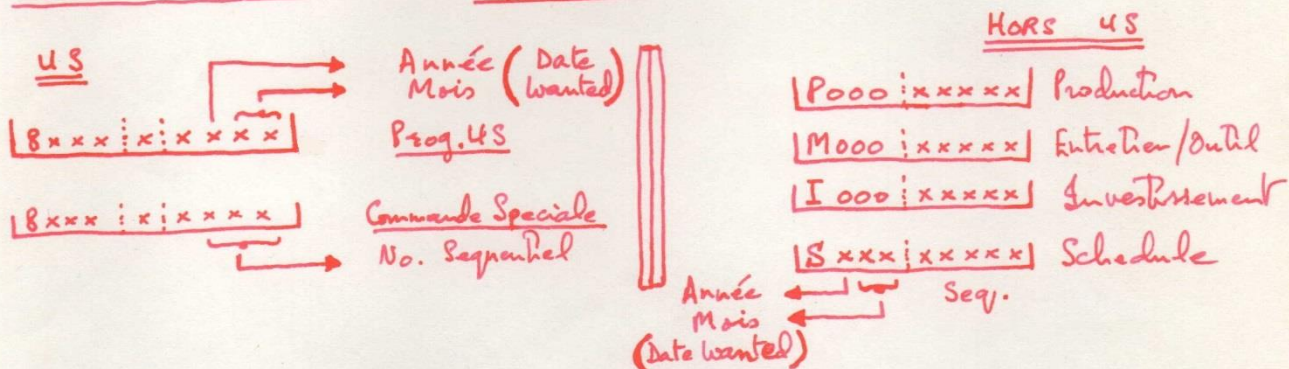 US
Année (Date
Mois Wanted)
8xxx x xxxx
Prog. US
8xxx x xxxx
Commande Speciale
No. Sequentiel
HORS US
P000 xxxxx Production
M000 xxxxx Entretien/Outil
I000 xxxxx Investissement
Sxxx xxxxx Schedule
Année
Seq.
Mois
(Date Wanted)